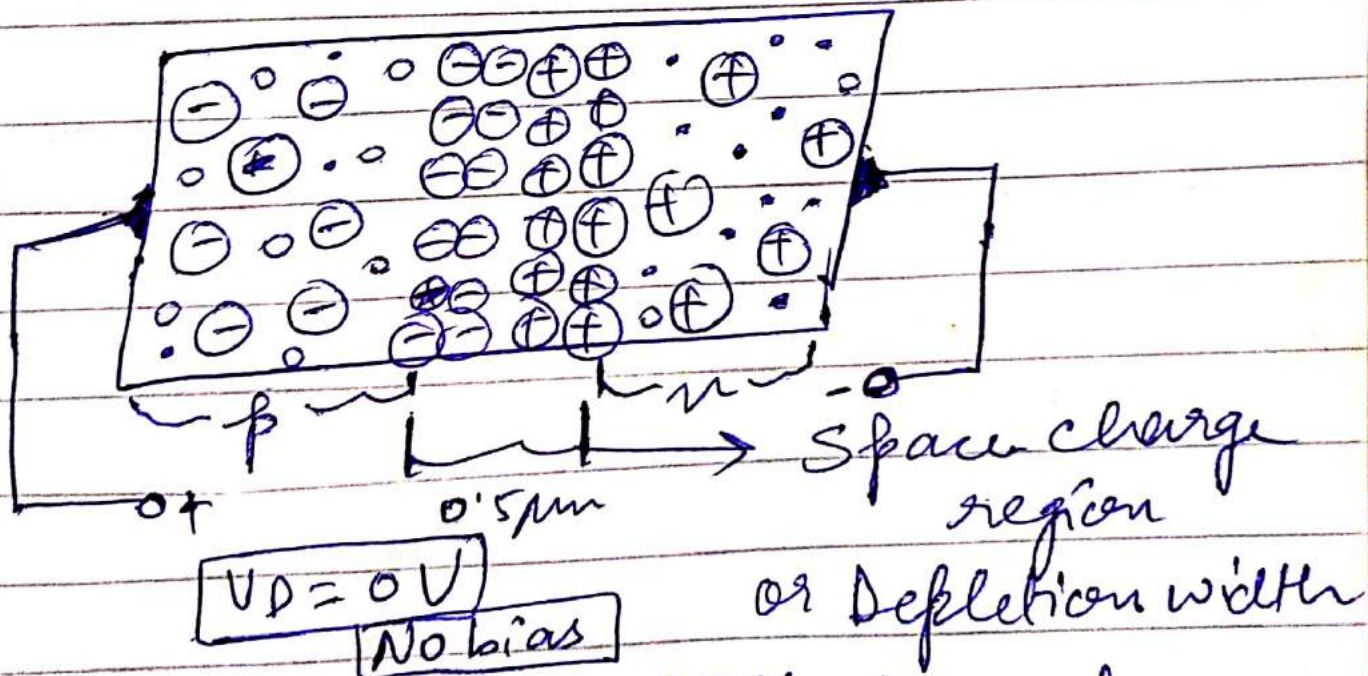 p
n
-
+
0.5μm
Space charge
region
or Depletion width
VD = 0 V
No bias